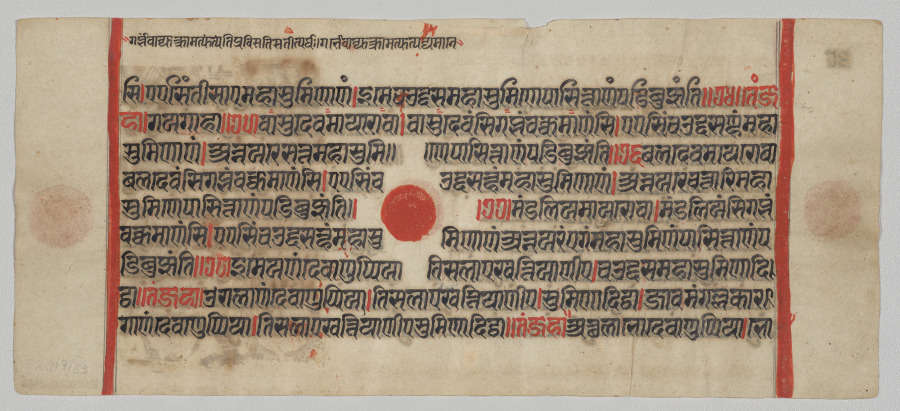 सि।एएसिं तीसाए महासुमिणाणं।इमे चउद्दस महासुमिणे पासित्ताणं पडिबुज्झंति॥७४॥तंज
हा॥गयगाहा॥७५॥वासुदेवमायरो वा।वासुदेवंसि गब्भं वक्कमाणंसि।एएसिं चउद्दसण्हं महा
सुमिणाणं।अन्नयरे सत्त महासुमि॥ णे पासित्ताणं पडिबुज्झंति॥७६बलदेवमायरो वा
बलदेवंसि गब्भं वक्कमाणंसि।एएसिं च उद्दसण्हं महासुमिणाणं।अन्नयरे चत्तारि महा
सुमिणे पासित्ताणं पडिबुज्झंति॥ ॥७७॥मंडलियमायरो वा।मंडलियंसि गब्भं
वक्कमाणंसि।एएसिं चउद्दसण्हं महासु मिणाणं अन्नयरं एगं महासुमिणं पासित्ताणं प
डिबुज्झंति॥७८॥इमे य णं देवाणुप्पिया तिसलाए खत्तियाणीए।चउद्दस महासुमिणा दि
ट्ठा॥तंजहा॥उरालाणं देवाणुप्पिया।तिसलाए खत्तियाणीए।सुमिणा दिट्ठा।जाव मंगल्लकार
गाणं देवाणुप्पिया।तिसलाए खत्तियाणीए सुमिणा दिट्ठा॥तंजहा॥अत्थलाभो देवाणुप्पिया।ला